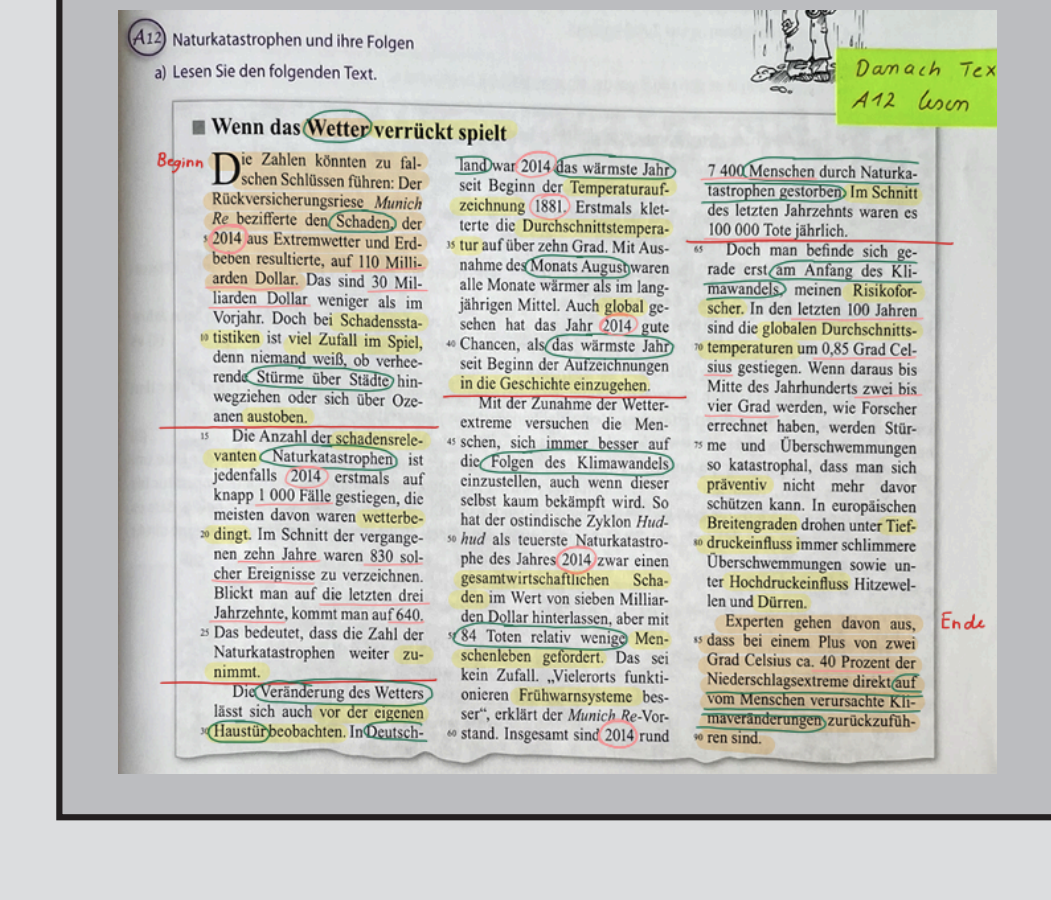 A12 Naturkatastrophen und ihre Folgen
a) Lesen Sie den folgenden Text.
Danach Tex
A12 lesen
Wenn das Wetter verrückt spielt
Beginn
Die Zahlen könnten zu fal-
schen Schlüssen führen: Der
Rückversicherungsriese Munich
Re bezifferte den Schaden, der
5 2014 aus Extremwetter und Erd-
beben resultierte, auf 110 Milli-
arden Dollar. Das sind 30 Mil-
liarden Dollar weniger als im
Vorjahr. Doch bei Schadenssta-
10 tistiken ist viel Zufall im Spiel,
denn niemand weiß, ob verhee-
rende Stürme über Städte hin-
wegziehen oder sich über Oze-
anen austoben.
15 Die Anzahl der schadensrele-
vanten Naturkatastrophen ist
jedenfalls 2014 erstmals auf
knapp 1 000 Fälle gestiegen, die
meisten davon waren wetterbe-
20 dingt. Im Schnitt der vergange-
nen zehn Jahre waren 830 sol-
cher Ereignisse zu verzeichnen.
Blickt man auf die letzten drei
Jahrzehnte, kommt man auf 640.
25 Das bedeutet, dass die Zahl der
Naturkatastrophen weiter zu-
nimmt.
Die Veränderung des Wetters
lässt sich auch vor der eigenen
30 Haustür beobachten. In Deutsch-
land war 2014 das wärmste Jahr
seit Beginn der Temperaturauf-
zeichnung 1881. Erstmals klet-
terte die Durchschnittstempera-
35 tur auf über zehn Grad. Mit Aus-
nahme des Monats August waren
alle Monate wärmer als im lang-
jährigen Mittel. Auch global ge-
sehen hat das Jahr 2014 gute
40 Chancen, als das wärmste Jahr
seit Beginn der Aufzeichnungen
in die Geschichte einzugehen.
Mit der Zunahme der Wetter-
extreme versuchen die Men-
45 schen, sich immer besser auf
die Folgen des Klimawandels
einzustellen, auch wenn dieser
selbst kaum bekämpft wird. So
hat der ostindische Zyklon Hud-
50 hud als teuerste Naturkatastro-
phe des Jahres 2014 zwar einen
gesamtwirtschaftlichen Scha-
den im Wert von sieben Milliar-
den Dollar hinterlassen, aber mit
55 84 Toten relativ wenige Men-
schenleben gefordert. Das sei
kein Zufall. „Vielerorts funkti-
onieren Frühwarnsysteme bes-
ser“, erklärt der Munich Re-Vor-
60 stand. Insgesamt sind 2014 rund
7 400 Menschen durch Naturka-
tastrophen gestorben. Im Schnitt
des letzten Jahrzehnts waren es
100 000 Tote jährlich.
65 Doch man befinde sich ge-
rade erst am Anfang des Kli-
mawandels, meinen Risikofor-
scher. In den letzten 100 Jahren
sind die globalen Durchschnitts-
70 temperaturen um 0,85 Grad Cel-
sius gestiegen. Wenn daraus bis
Mitte des Jahrhunderts zwei bis
vier Grad werden, wie Forscher
errechnet haben, werden Stür-
75 me und Überschwemmungen
so katastrophal, dass man sich
präventiv nicht mehr davor
schützen kann. In europäischen
Breitengraden drohen unter Tief-
80 druckeinfluss immer schlimmere
Überschwemmungen sowie un-
ter Hochdruckeinfluss Hitzewel-
len und Dürren.
Experten gehen davon aus,
85 dass bei einem Plus von zwei
Grad Celsius ca. 40 Prozent der
Niederschlagsextreme direkt auf
vom Menschen verursachte Kli-
maveränderungen zurückzufüh-
90 ren sind.
Ende